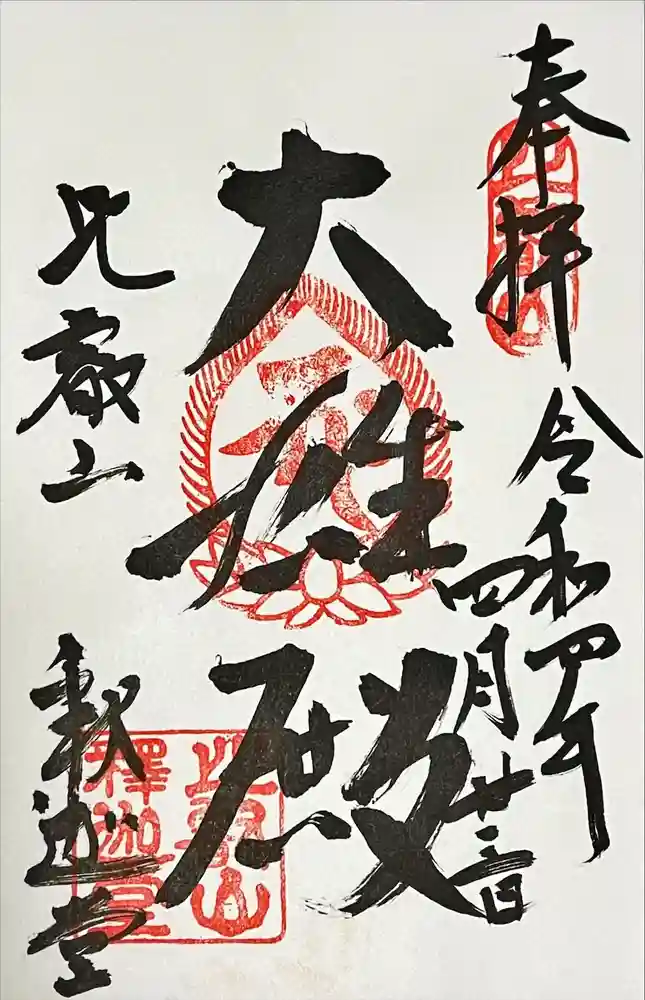 奉拝
令和四年
四月廿三日
大雄殿
比叡山
釈迦堂
比叡山
釋迦堂